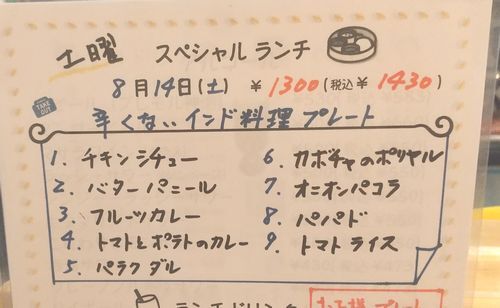 土曜 スペシャル ランチ
8月14日(土) ¥1300(税込¥1430)
TAKE OUT
辛くない インド料理 プレート
1. チキン シチュー
2. バター パニール
3. フルーツカレー
4. トマトとポテトのカレー
5. パラク ダル
6. カボチャのポリヤル
7. オニオンパコラ
8. パパド
9. トマト ライス
ランチドリンク
お子様プレート